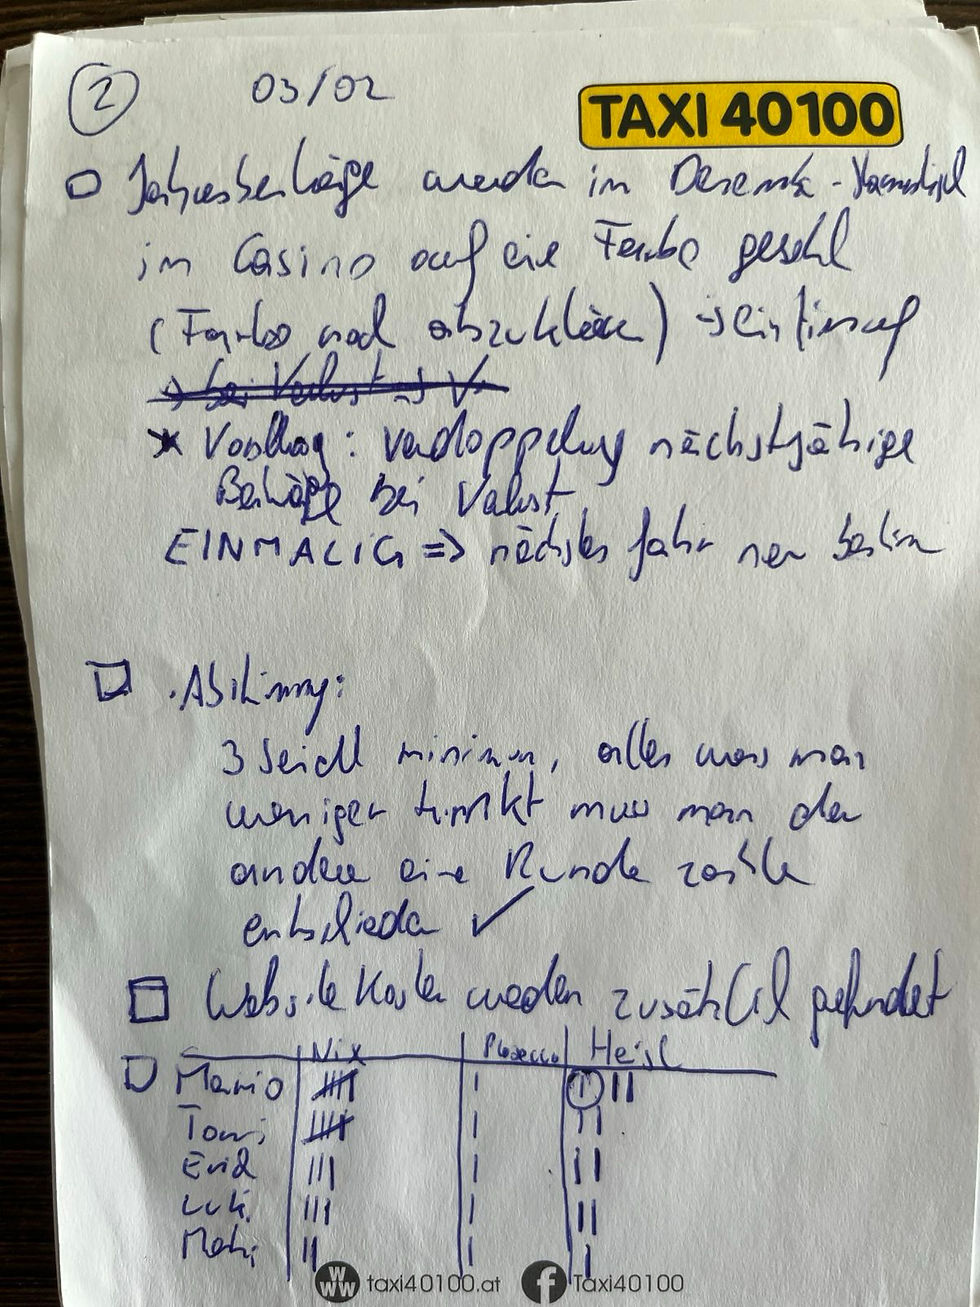 2 03/02
TAXI 40100
Jahresbeiträge werden im Dezember-
im Casino auf eine Farbe gesetzt
(Farbe noch abzuklären) → einstimmig
→ bei Verlust → V
* Vorschlag: Verdoppelung nächstjährige
Beiträge bei Verlust
EINMALIG => nächstes Jahr neu
Abstimmung:
3 Seidl minimum, alles was man
weniger trinkt muss man den
anderen eine Runde zahlen
entschieden ✓
Website Kosten werden zusätzlich gefundet
Nix Prosecco Heisl
Mario
Tomi
Erich
Luki
Mahi
www taxi40100.at f Taxi40100